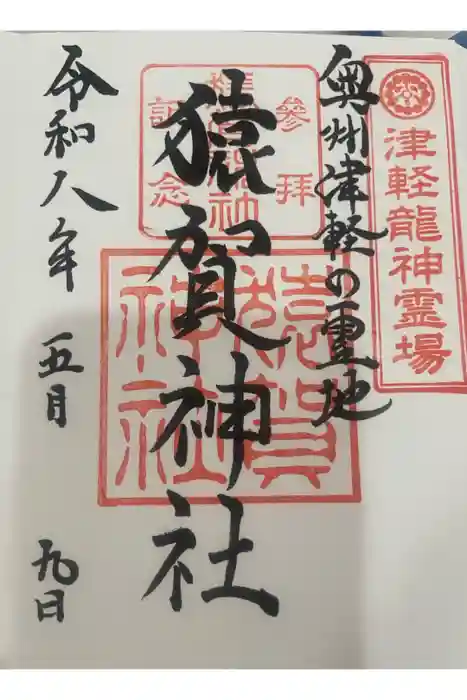 津軽龍神霊場
奥州津軽の霊地
参拝
記念
猿賀神社
猿賀
神社
令和八年 五月 九日